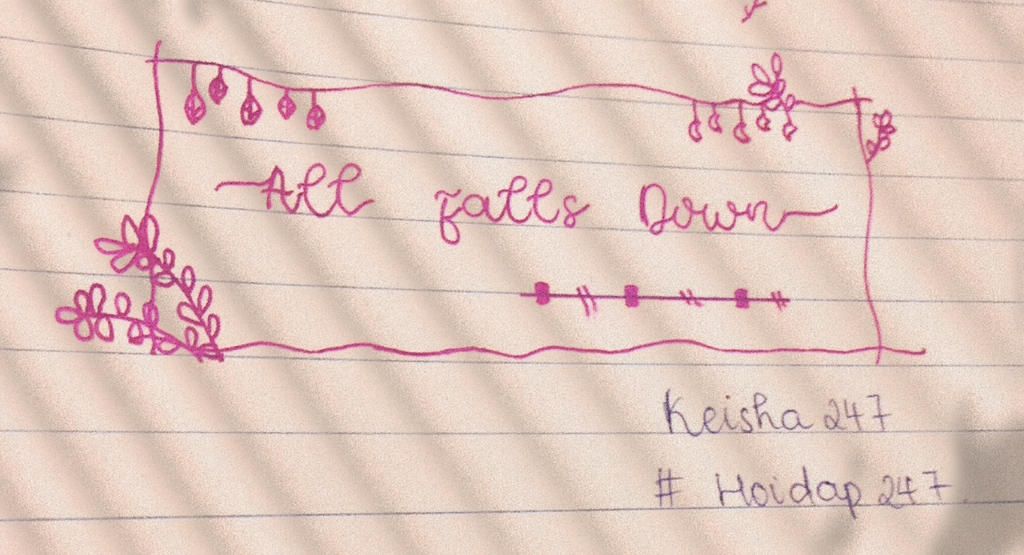 All falls Down
Keisha 247
# Hoidap 247